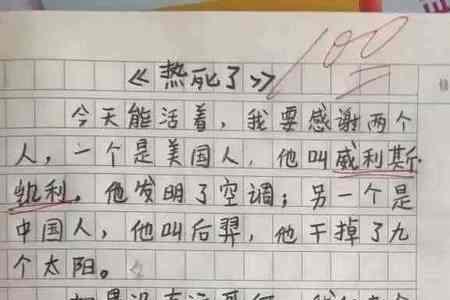 100
《热死了》
今天能活着，我要感谢两个
人，一个是美国人，他叫威利斯·
凯利，他发明了空调；另一个是
中国人，他叫后羿，他干掉了九
个太阳。